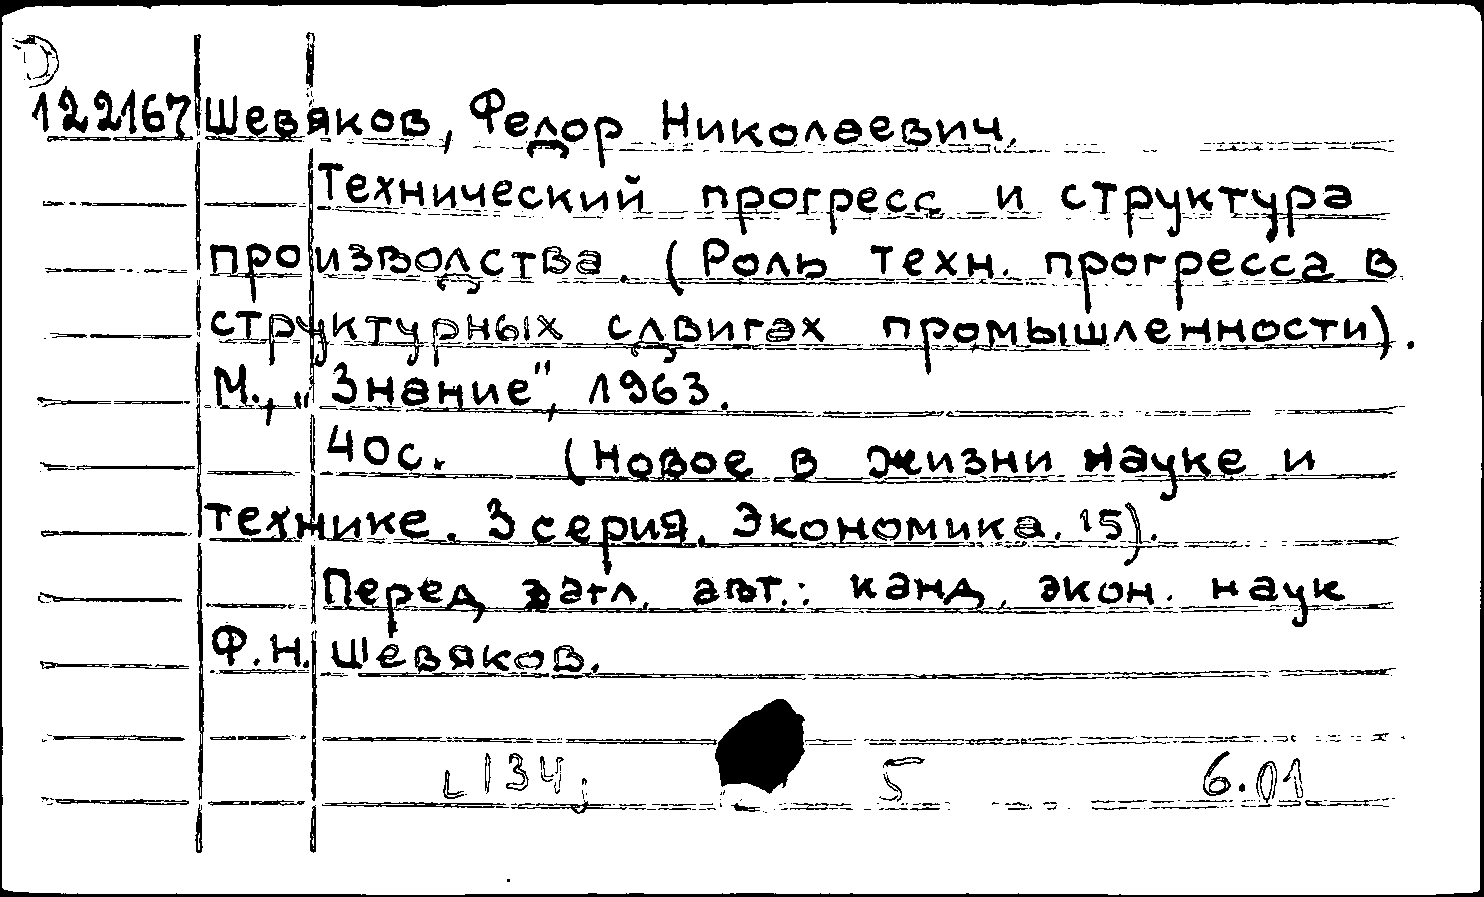 122167 Шевяков, Федор Николаевич.
Технический прогресс и структура
производства. (Роль техн. прогресса в
структурных сдвигах промышленности).
М., „Знание", 1963.
40с. (Новое в жизни науке и
технике. 3 серия. Экономика. 15).
Перед загл. авт.: канд. экон. наук
Ф.Н. Шевяков.
134 5 6.01